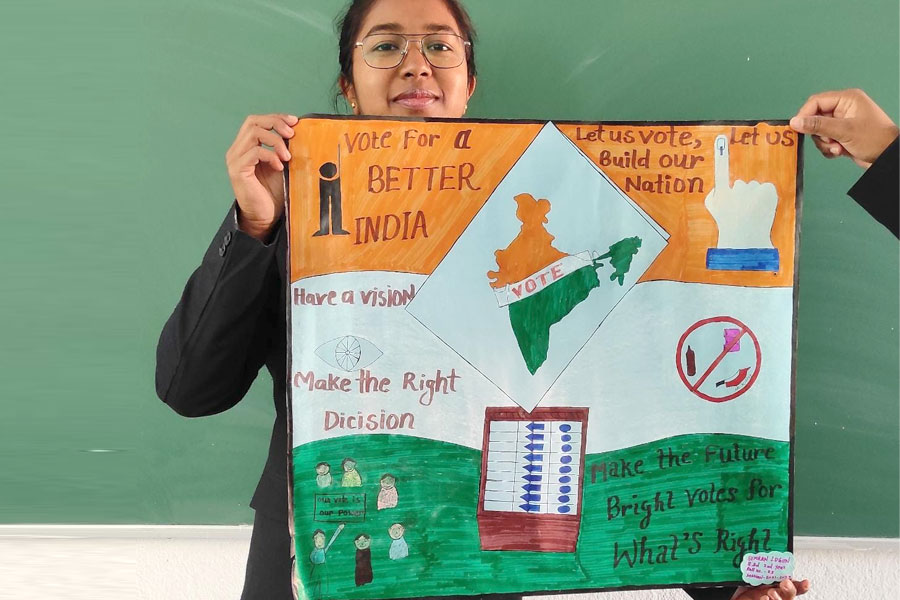 Vote For a
BETTER
INDIA
Let us vote, Let us
Build our
Nation
VOTE
Have a vision
Make the Right
Dicision
our vote is
our Power
Make the Future
Bright votes for
What's Right